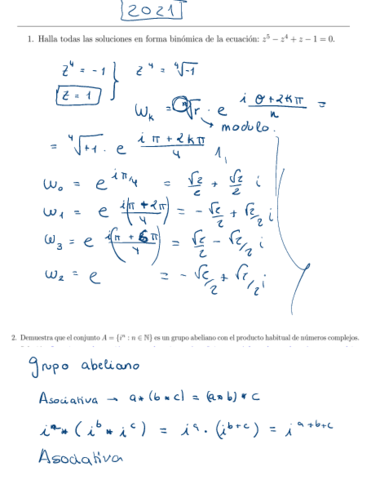 2021
1. Halla todas las soluciones en forma binómica de la ecuación: z⁵ − z⁴ + z − 1 = 0.
z⁴ = -1 } z⁴ = ⁴√-1
z = 1
w_k = ⁿ√r · e^(i (θ+2kπ)/n) =
→ modulo.
= ⁴√+1 · e^(i (π+2kπ)/4)
w₀ = e^(iπ/4) = √2/2 + √2/2 i
w₁ = e^(i(π+2π)/4) = -√2/2 + √2/2 i
w₃ = e^(i(π+6π)/4) = √2/2 - √2/2 i
w₂ = e = -√2/2 + √2/2 i
2. Demuestra que el conjunto A = {iⁿ : n ∈ ℕ} es un grupo abeliano con el producto habitual de números complejos.
grupo abeliano
Asociativa → a*(b*c) = (a*b)*c
iᵃ*(iᵇ*iᶜ) = iᵃ·(iᵇ⁺ᶜ) = iᵃ⁺ᵇ⁺ᶜ
Asociativa